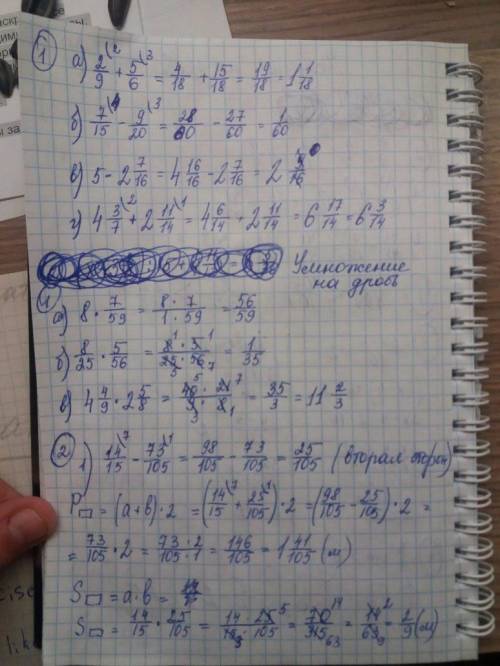 1) а) 2/9 \2 + 5/6 \3 = 4/18 + 15/18 = 19/18 = 1 1/18
б) 7/15 \4 - 9/20 \3 = 28/60 - 27/60 = 1/60
в) 5 - 2 7/16 = 4 16/16 - 2 7/16 = 2 9/16
г) 4 3/7 \2 + 2 11/14 \1 = 4 6/14 + 2 11/14 = 6 17/14 = 6 3/14
Умножение
на дробь
1
а) 8 · 7/59 = 8 · 7/1 · 59 = 56/59
б) 8/25 · 5/56 = 8 · 5/25 · 56 = 1/35
в) 4 4/9 · 2 5/8 = 40 · 21/9 · 8 = 35/3 = 11 2/3
2) 1) 14/15 \7 - 73/105 \1 = 98/105 - 73/105 = 25/105 (вторая сторон)
P▭ = (a+b) · 2 = (14/15 \7 + 25/105 \1) · 2 = (98/105 - 25/105) · 2 =
= 73/105 · 2 = 73 · 2/105 · 1 = 146/105 = 1 41/105 (м)
S▭ = a · b =
S▭ = 14/15 · 25/105 = 14 · 25/15 · 105 = 70/315 = 14/63 = 2/9 (м)